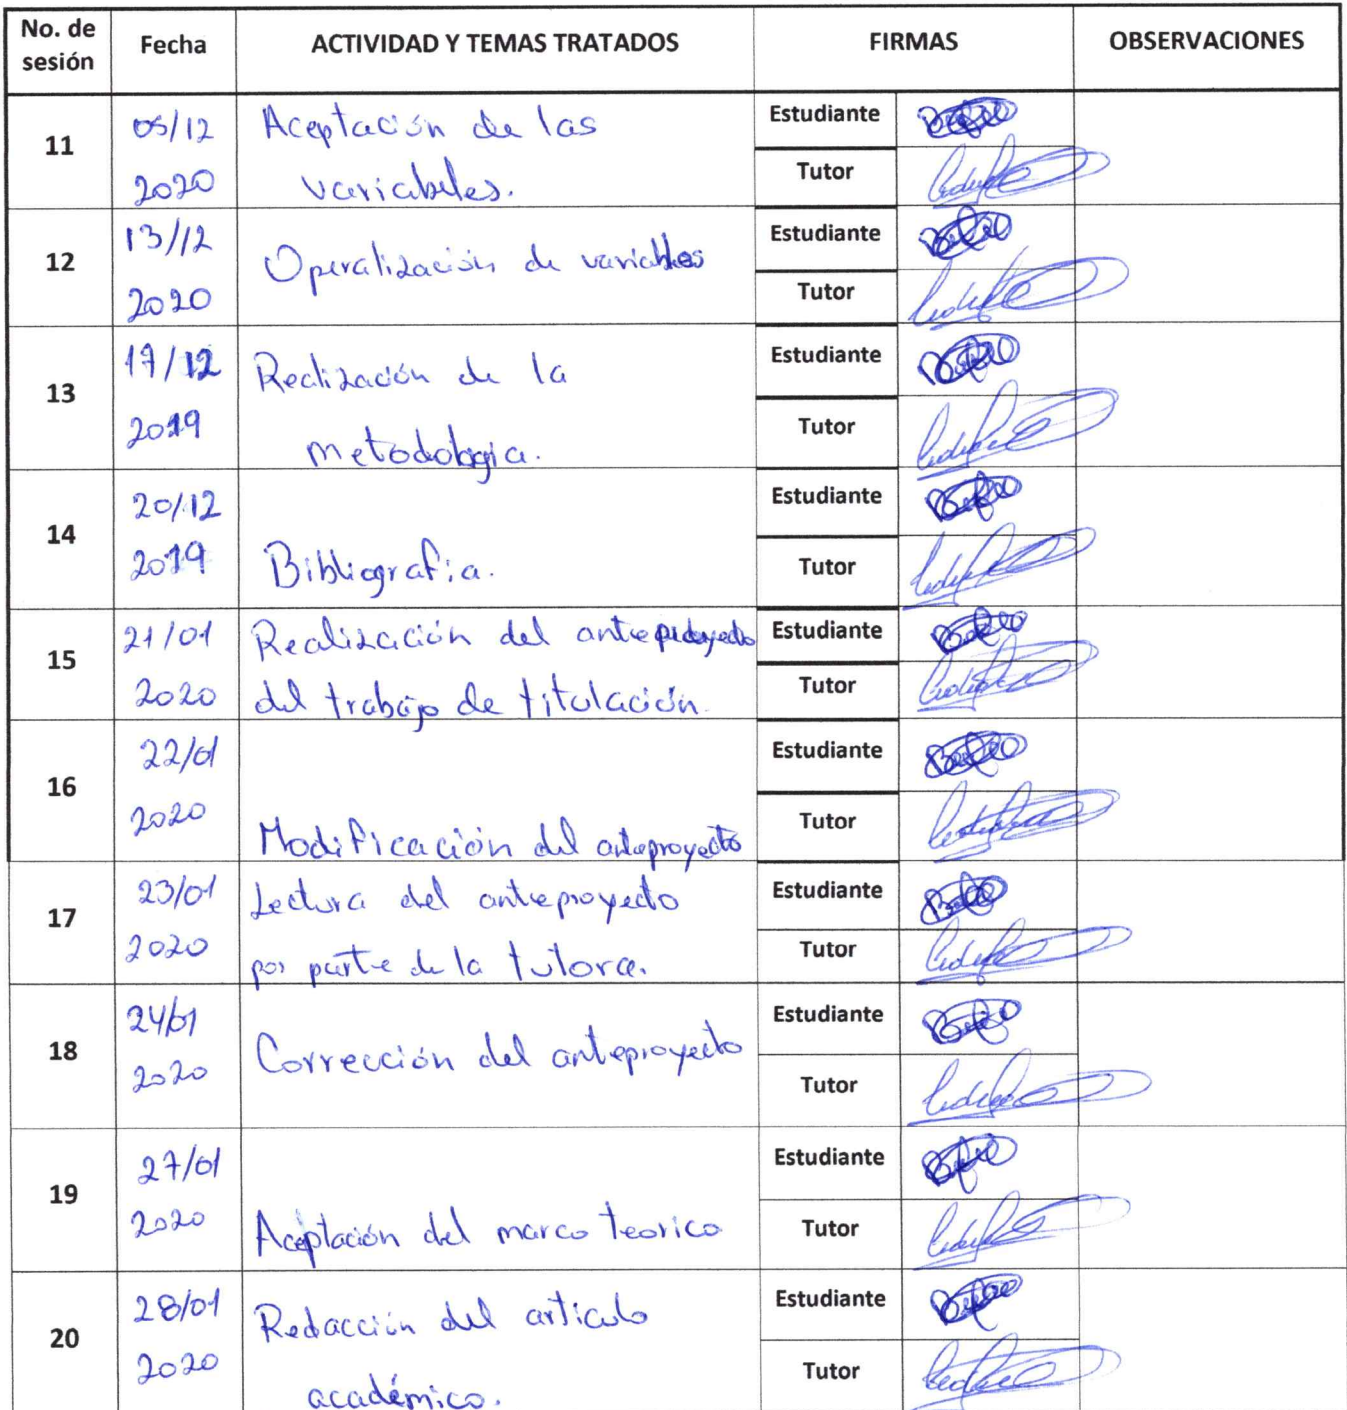 No. de sesión Fecha ACTIVIDAD Y TEMAS TRATADOS FIRMAS OBSERVACIONES
11 05/12 2020 Aceptación de las Estudiante
variabeles. Tutor
12 13/12 2020 Operalización de variables Estudiante
Tutor
13 17/12 2019 Realización de la Estudiante
metodologia. Tutor
14 20/12 2019 Bibliografia. Estudiante
Tutor
15 21/01 2020 Realización del anteproyecto Estudiante
del trabajo de titulación. Tutor
16 22/01 2020 Modificación del anteproyecto Estudiante
Tutor
17 23/01 2020 Lectura del anteproyecto Estudiante
por parte de la tutora. Tutor
18 24/01 2020 Corrección del anteproyecto Estudiante
Tutor
19 27/01 2020 Aceptación del marco teorico Estudiante
Tutor
20 28/01 2020 Redacción del articulo Estudiante
académico. Tutor